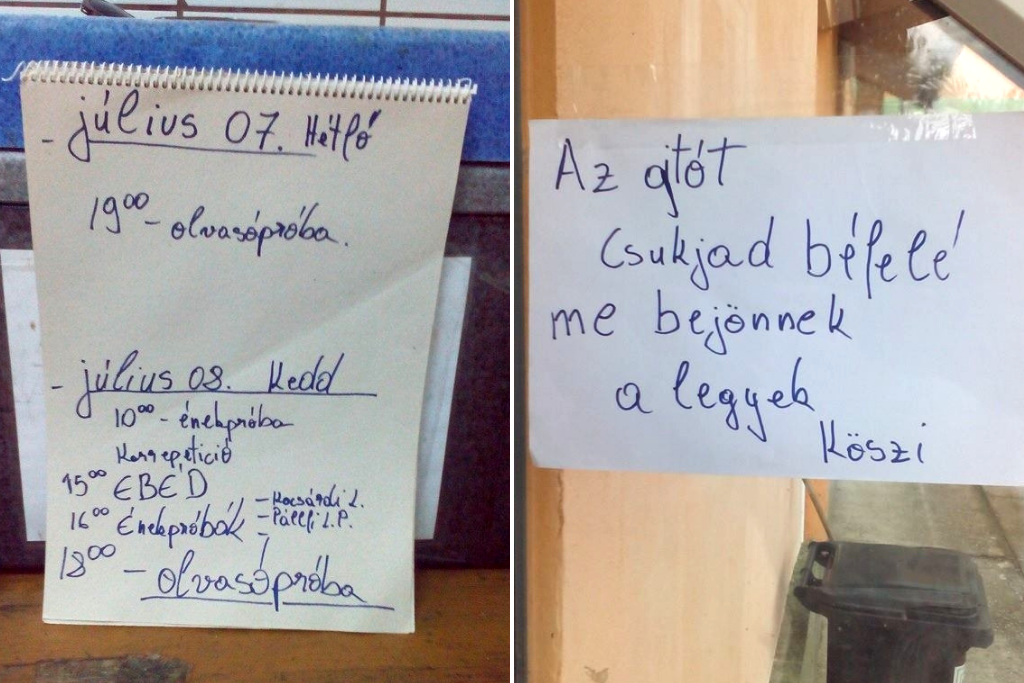 - július 07. Hétfő
19⁰⁰ - olvasópróba.
- július 08. Kedd
10⁰⁰ - énekpróba
Korrepetició
15⁰⁰ EBÉD
16⁰⁰ Énekpróbák - Kocsárdi L.
- Pálffi Z.P.
18⁰⁰ - olvasópróba
Az ajtót
Csukjad béfelé
me bejönnek
a legyek
Köszi